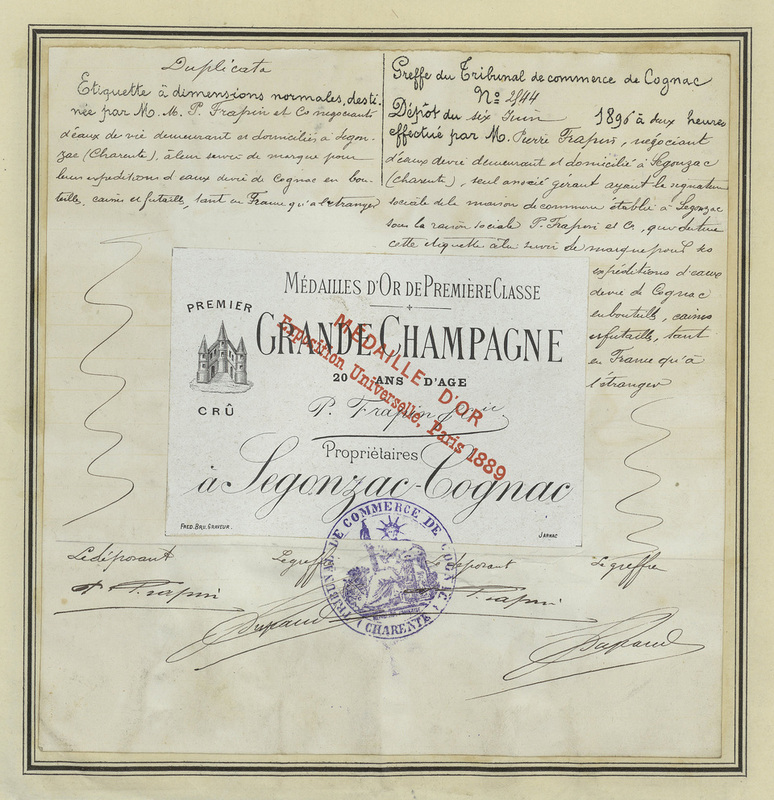 Duplicata
Etiquette à dimensions normales, desti-
née par M. M. P. Frapin et Co négociants
d'eaux de vie demeurant et domiciliés à Segon-
zac (Charente), à leur servir de marque pour
leurs expéditions d'eaux de vie de Cognac en bou-
teilles, caisses et futailles, tant en France qu'à l'étranger
Greffe du Tribunal de commerce de Cognac
No 2544
Dépôt du six Juin 1896 à deux heures
effectué par M. Pierre Frapin, négociant
d'eaux de vie demeurant et domicilié à Segonzac
(Charente), seul associé gérant ayant la signature
sociale de la maison de commerce établie à Segonzac
sous la raison sociale P. Frapin et Co, qui destine
cette étiquette à lui servir de marque pour ses
expéditions d'eaux
de vie de Cognac
en bouteilles, caisses
et futailles, tant
en France qu'à
l'étranger
MÉDAILLES D'OR DE PREMIÈRE CLASSE
PREMIER
CRÛ
GRANDE CHAMPAGNE
20 ANS D'AGE
P. Frapin & Cie
MÉDAILLE D'OR
Exposition Universelle, Paris 1889
Propriétaires
à Segonzac-Cognac
FRED. BRU, GRAVEUR.
JARNAC
TRIBUNAL DE COMMERCE DE COGNAC
(CHARENTE)
Le déposant
Le greffier
Le déposant
Le greffier
P. Frapin
P. Frapin